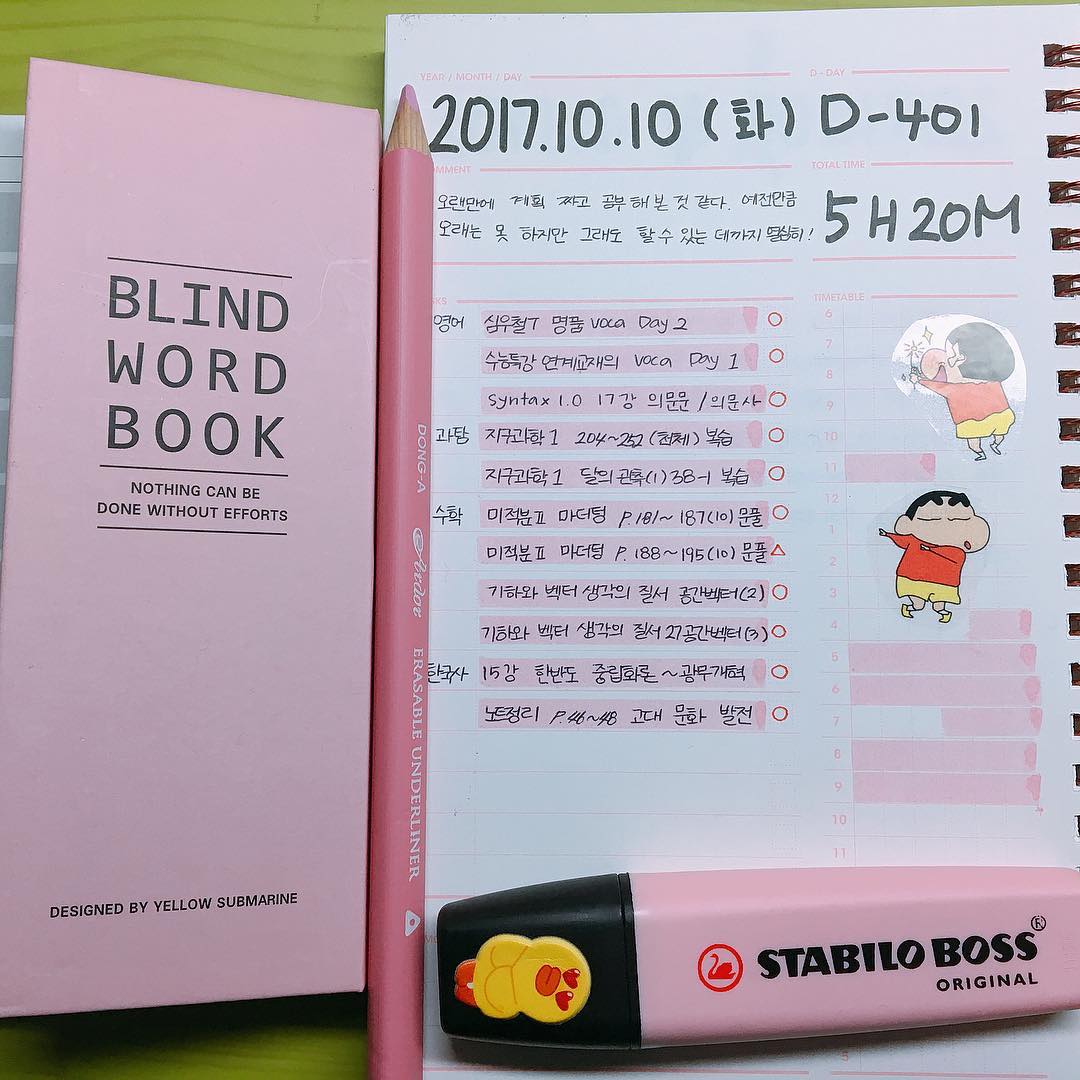 BLIND
WORD
BOOK
NOTHING CAN BE
DONE WITHOUT EFFORTS
DESIGNED BY YELLOW SUBMARINE
DONG-A
Ardor
ERASABLE UNDERLINER
YEAR / MONTH / DAY
D-DAY
2017.10.10 (화) D-401
OMMENT
TOTAL TIME
오랜만에 계획 짜고 공부 해 본 것 같다. 예전만큼
오래는 못 하지만 그래도 할 수 있는 데까지 열심히!
5H20M
KS
TIMETABLE
영어 심우철T 명품 voca Day 2
수능특강 연계교재의 voca Day 1
syntax 1.0 17강 의문문 / 의문사
과탐 지구과학 1 204~252 (천체) 복습
지구과학 1 달의 관측(1) 38-1 복습
수학 미적분Ⅱ 마더텅 P.181~187(10) 문풀
미적분Ⅱ 마더텅 P.188~195(10) 문풀
기하와 벡터 생각의 질서 공간벡터(2)
기하와 벡터 생각의 질서 27 공간벡터(3)
한국사 15강 한반도 중립화론 ~ 광무개혁
노트정리 P.46~48 고대 문화 발전
6
7
8
9
10
11
12
2
3
4
5
6
7
8
9
10
11
STABILO BOSS®
ORIGINAL
5